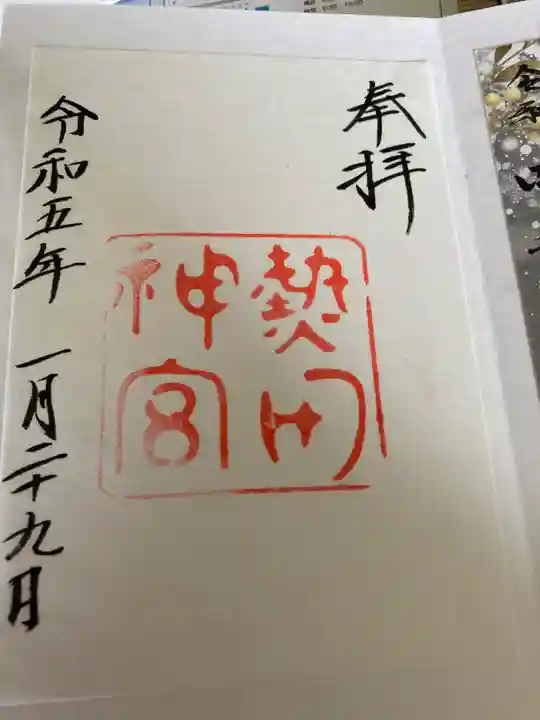 奉拝
熱田
神宮
令和五年 一月二十九日
令和